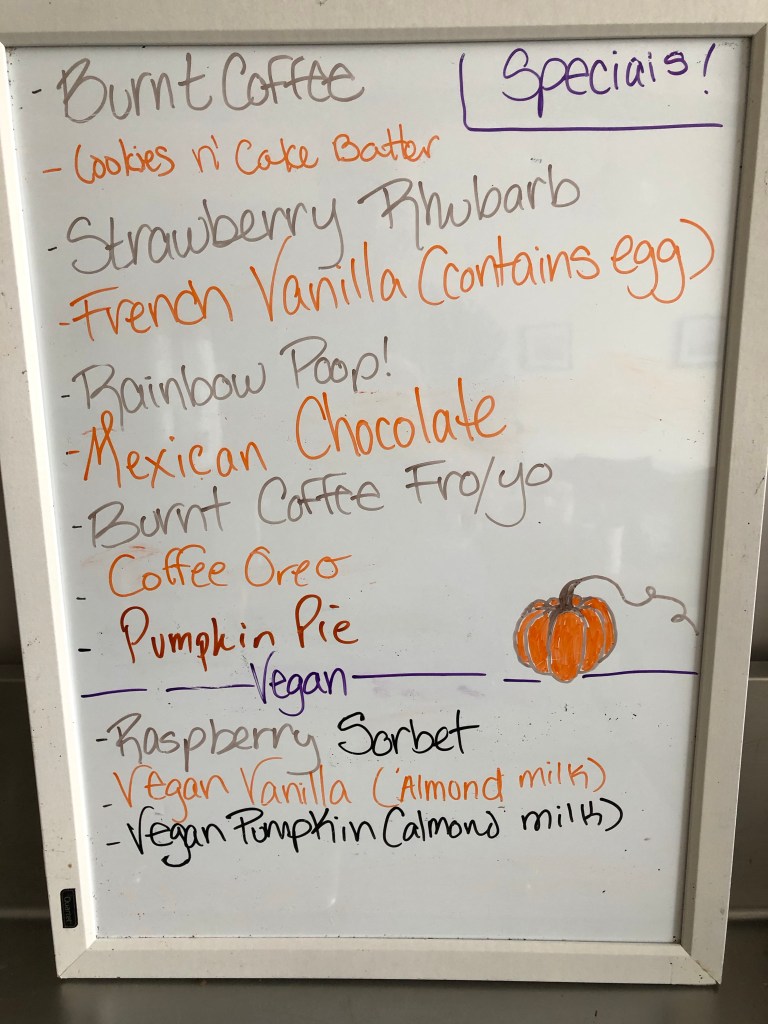 - Burnt Coffee
Specials!
- Cookies n' Cake Batter
- Strawberry Rhubarb
- French Vanilla (contains egg)
- Rainbow Poop!
- Mexican Chocolate
- Burnt Coffee Fro/yo
- Coffee Oreo
- Pumpkin Pie
Vegan
- Raspberry Sorbet
- Vegan Vanilla (Almond milk)
- Vegan Pumpkin (almond milk)
Quartet